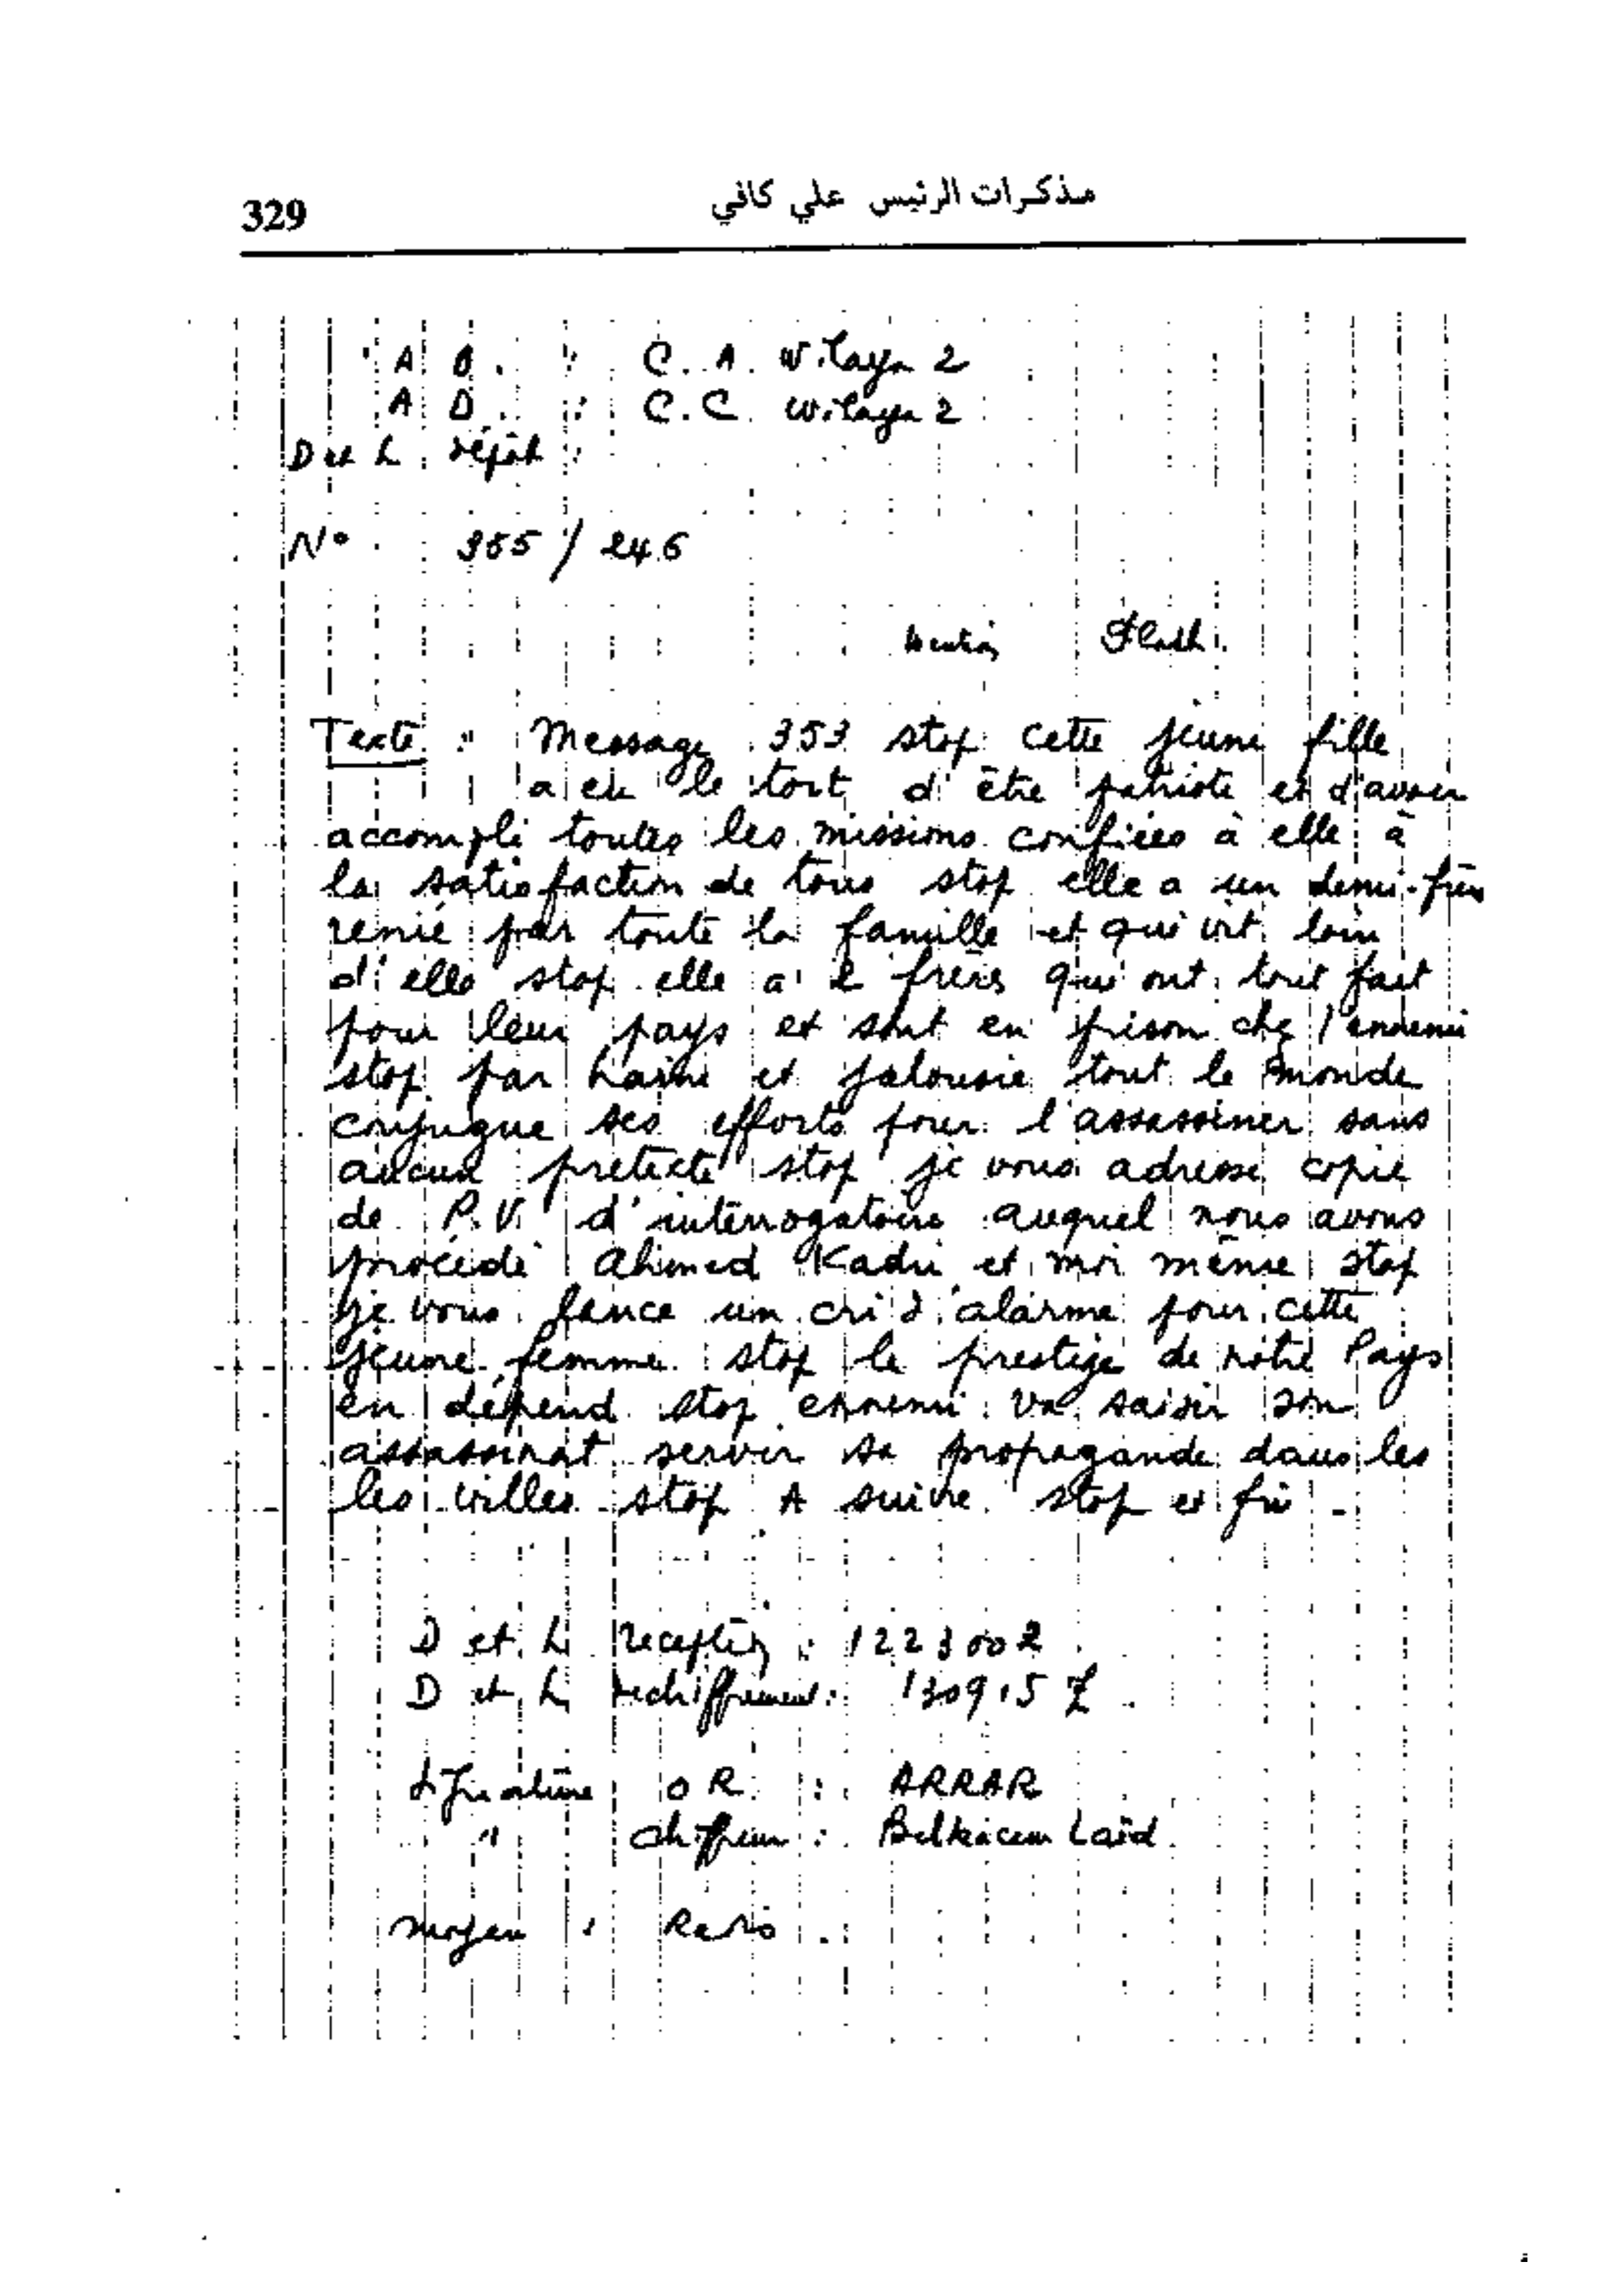 مذكرات الرئيس علي كافي
329
A O. : C. A. Wilaya 2
A D. : C.C. Wilaya 2
D et L dépôt :
N° 355 / 246
Mention Flash.
Texte : Message 353 stop cette jeune fille
a eu le tort d'être patriote et d'avoir
accompli toutes les missions confiées à elle à
la satisfaction de tous stop elle a un demi-frère
renié par toute la famille et qui vit loin
d'elle stop elle a 2 frères qui ont tout fait
pour leur pays et sont en prison chez l'ennemi
stop par haine et jalousie tout le monde
conjugue ses efforts pour l'assassiner sans
aucun pretexte stop je vous adresse copie
de P.V. d'interrogatoire auquel nous avons
procédé Ahmed Kadri et moi même stop
je vous lance un cri d'alarme pour cette
jeune femme stop le prestige de notre Pays
en dépend stop ennemi va saisir son
assassinat servir sa propagande dans les
les villes stop A suivre stop et fin -
D et L reception : 122300Z
D et L dechiffrement : 130915 Z.
Signature OR : ARRAR
" chiffreur : Belkacem Laïd
Moyen : Radio.